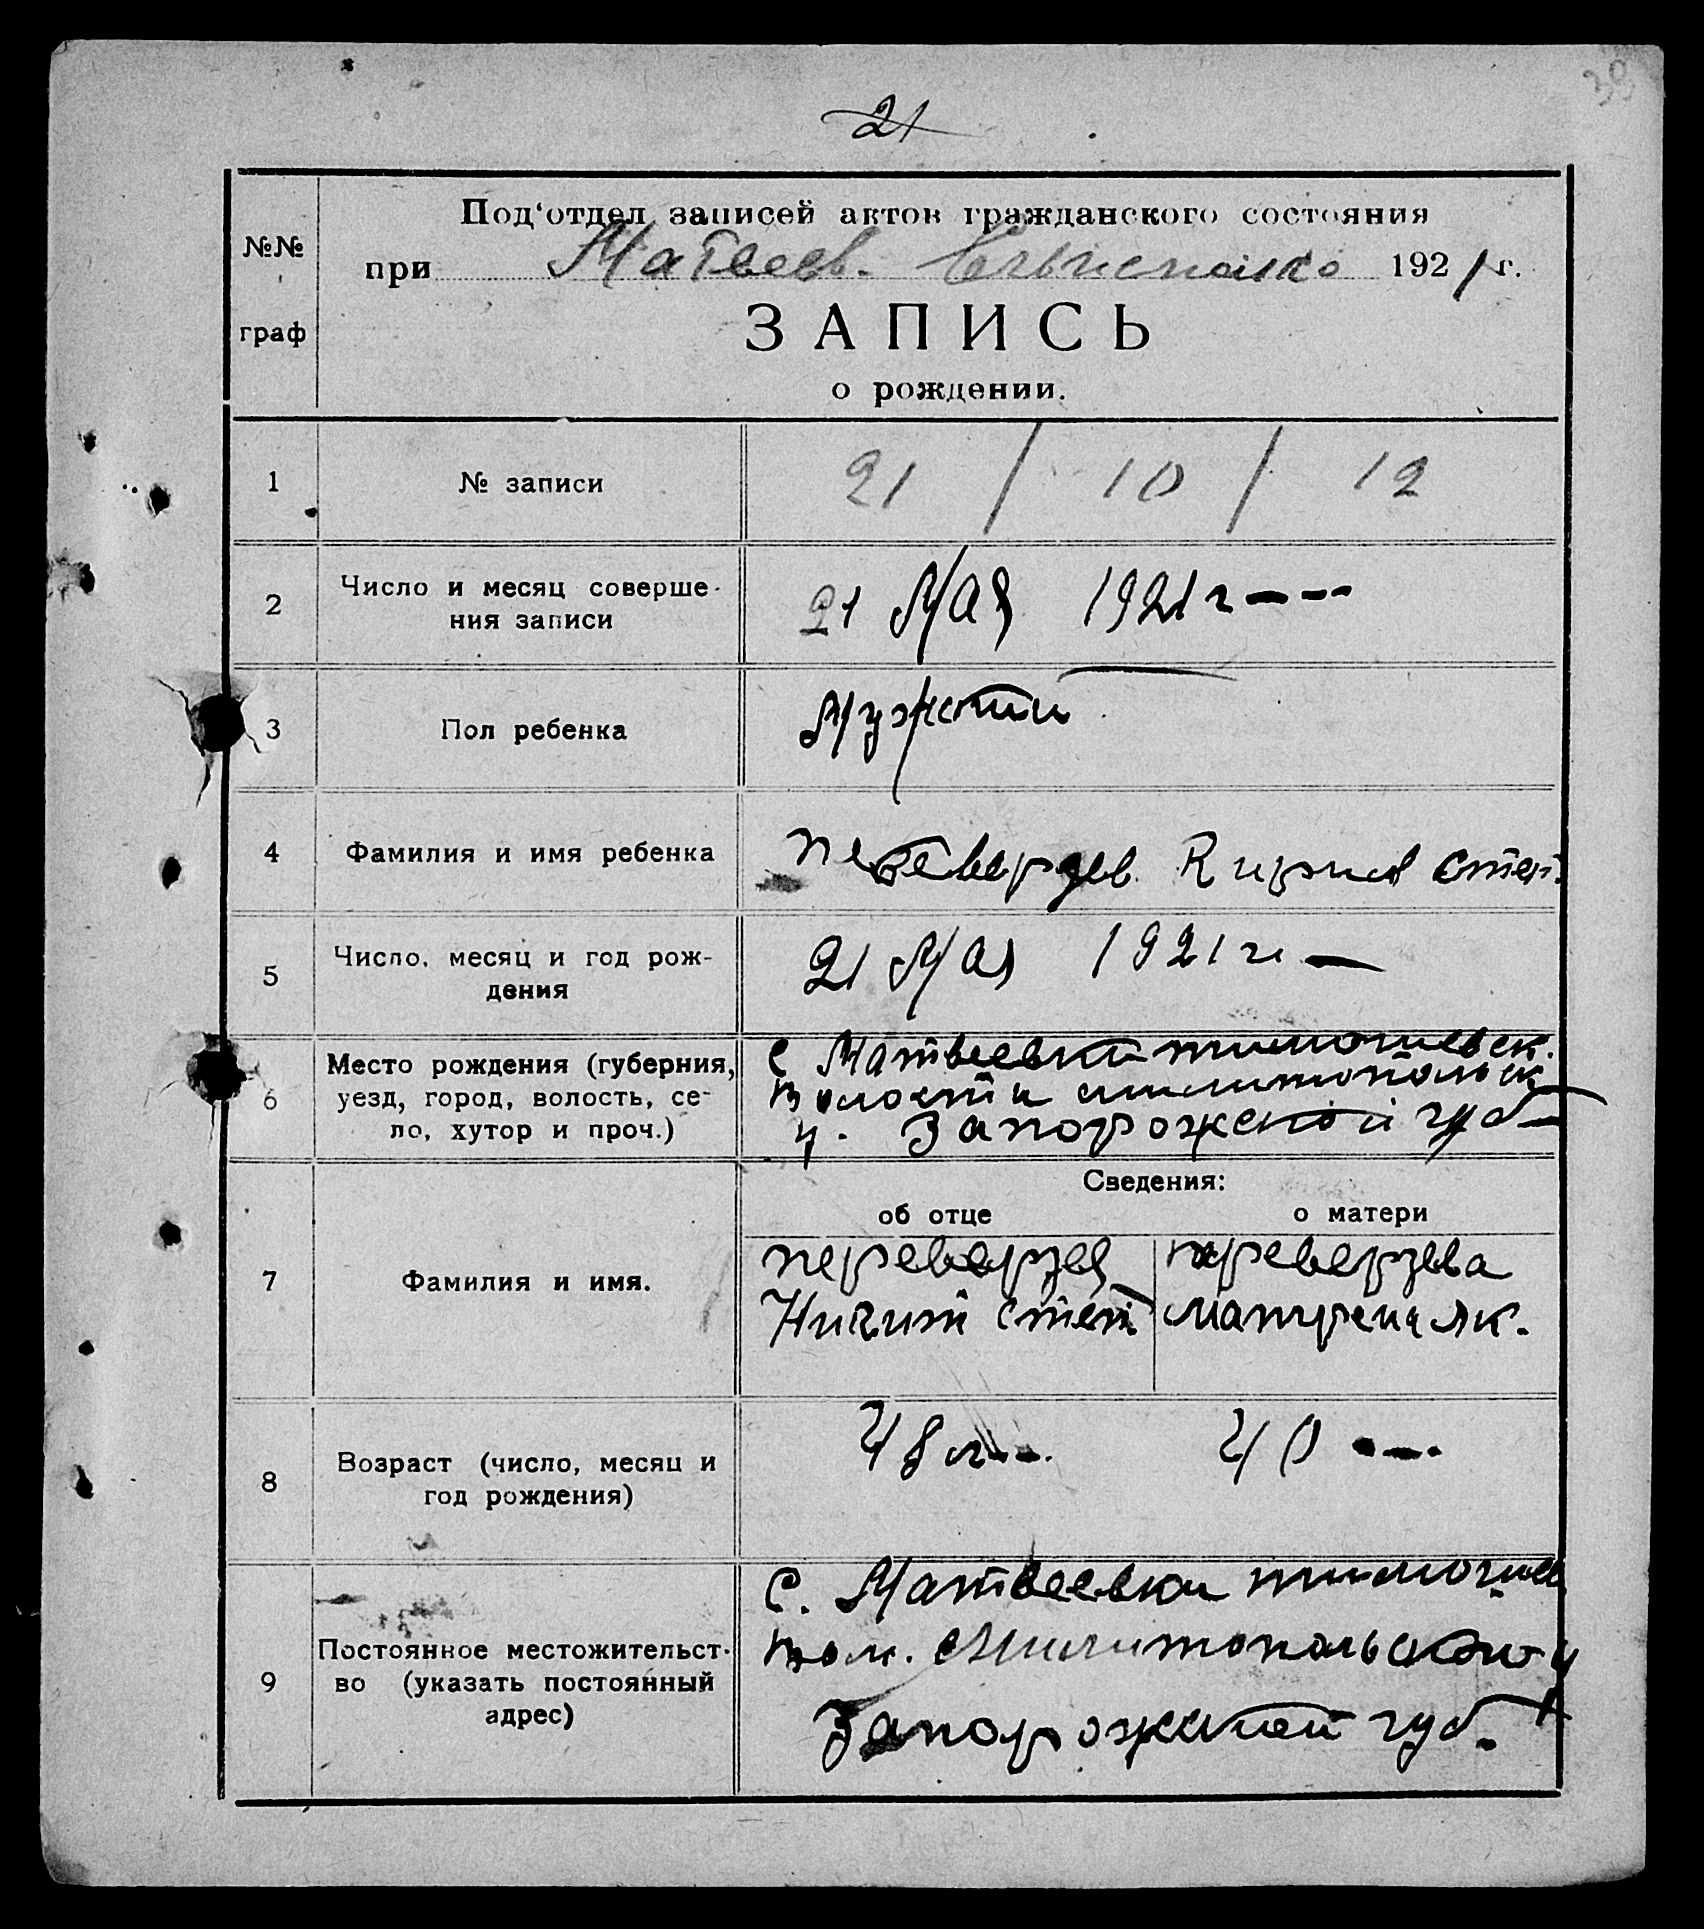 39
21
Под‘отдел записей актов гражданского состояния
№№
граф
при Матвеев. 1921 г.
ЗАПИСЬ
о рождении.
1 № записи 21 / 10 / 12
2 Число и месяц соверше-
ния записи
21 Мая 1921 г
3 Пол ребенка
4 Фамилия и имя ребенка
Степ.
5 Число, месяц и год рож-
дения
21 Мая 1921 г
6 Место рождения (губерния,
уезд, город, волость, се-
ло, хутор и проч.)
С Матвеевки
волости
у. Запорожской губ
Сведения:
об отце о матери
7 Фамилия и имя.
переверзев переверзева
Никит степ матрена як.
8 Возраст (число, месяц и
год рождения)
48 л 40
9 Постоянное местожительст-
во (указать постоянный
адрес)
С. Матвеевки
вол. у
Запорожской губ.